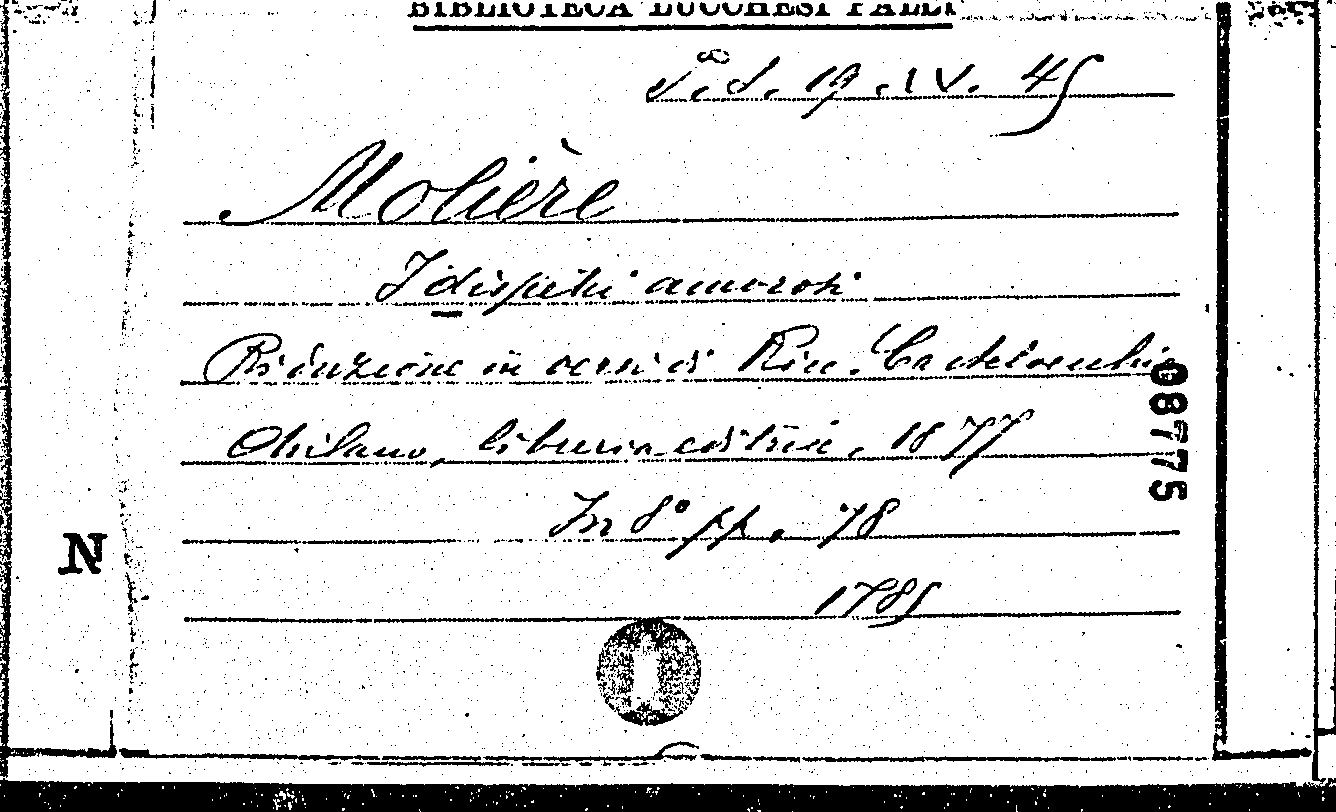 BIBLIOTECA LUCCHESI PALLI
19. IV. 45
Molière
I dispetti amorosi
Riduzione in versi di Ric. Castelvecchio
Milano, libreria editrice, 1877
In 8° pp. 78
1785
08775
N